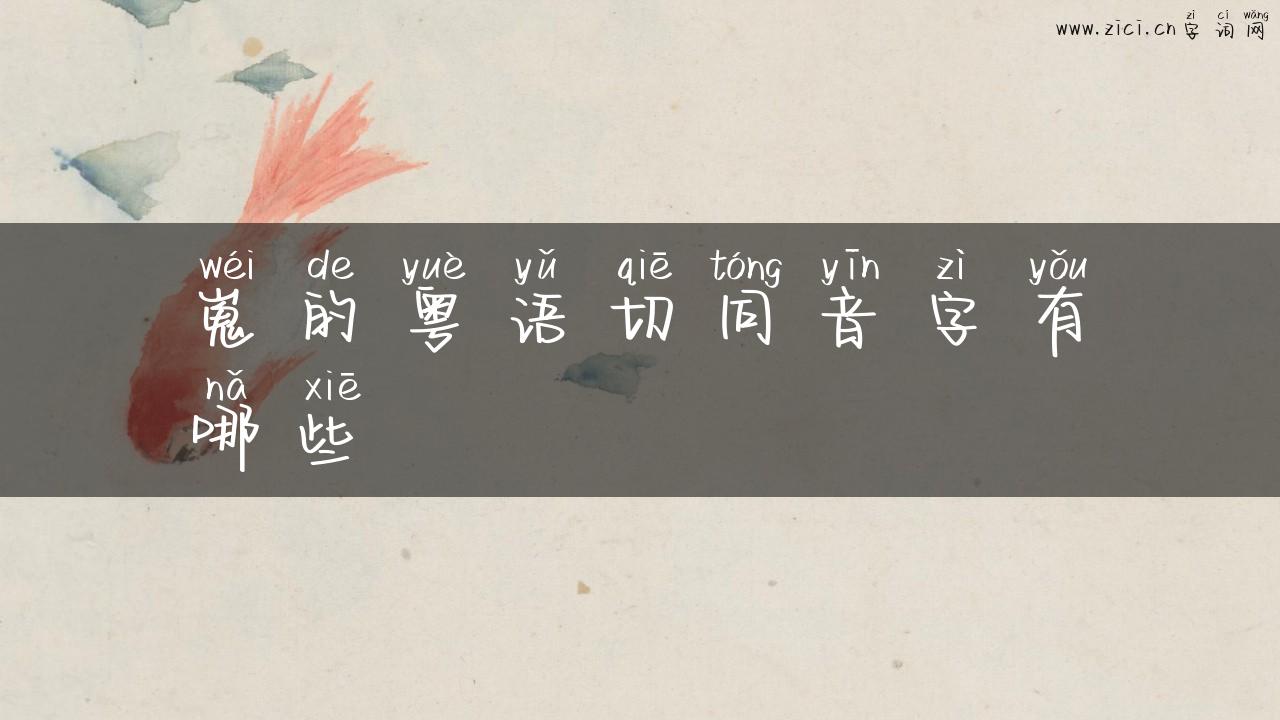 zì cí wǎng
www.zici.cn 字 词 网
wéi de yuè yǔ qiē tóng yīn zì yǒu
嵬 的 粤 语 切 同 音 字 有
nǎ xiē
哪 些